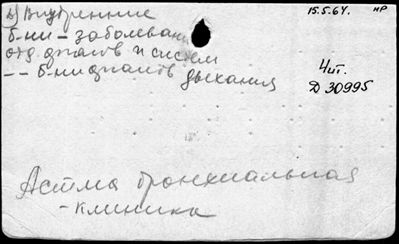 2) Внутренние
б-ни - заболевани
отд. органов и систем
-- б-ни органов дыхания
15.5.64. нр
Чит.
Д 30995
Астма бронхиальная
- клиника